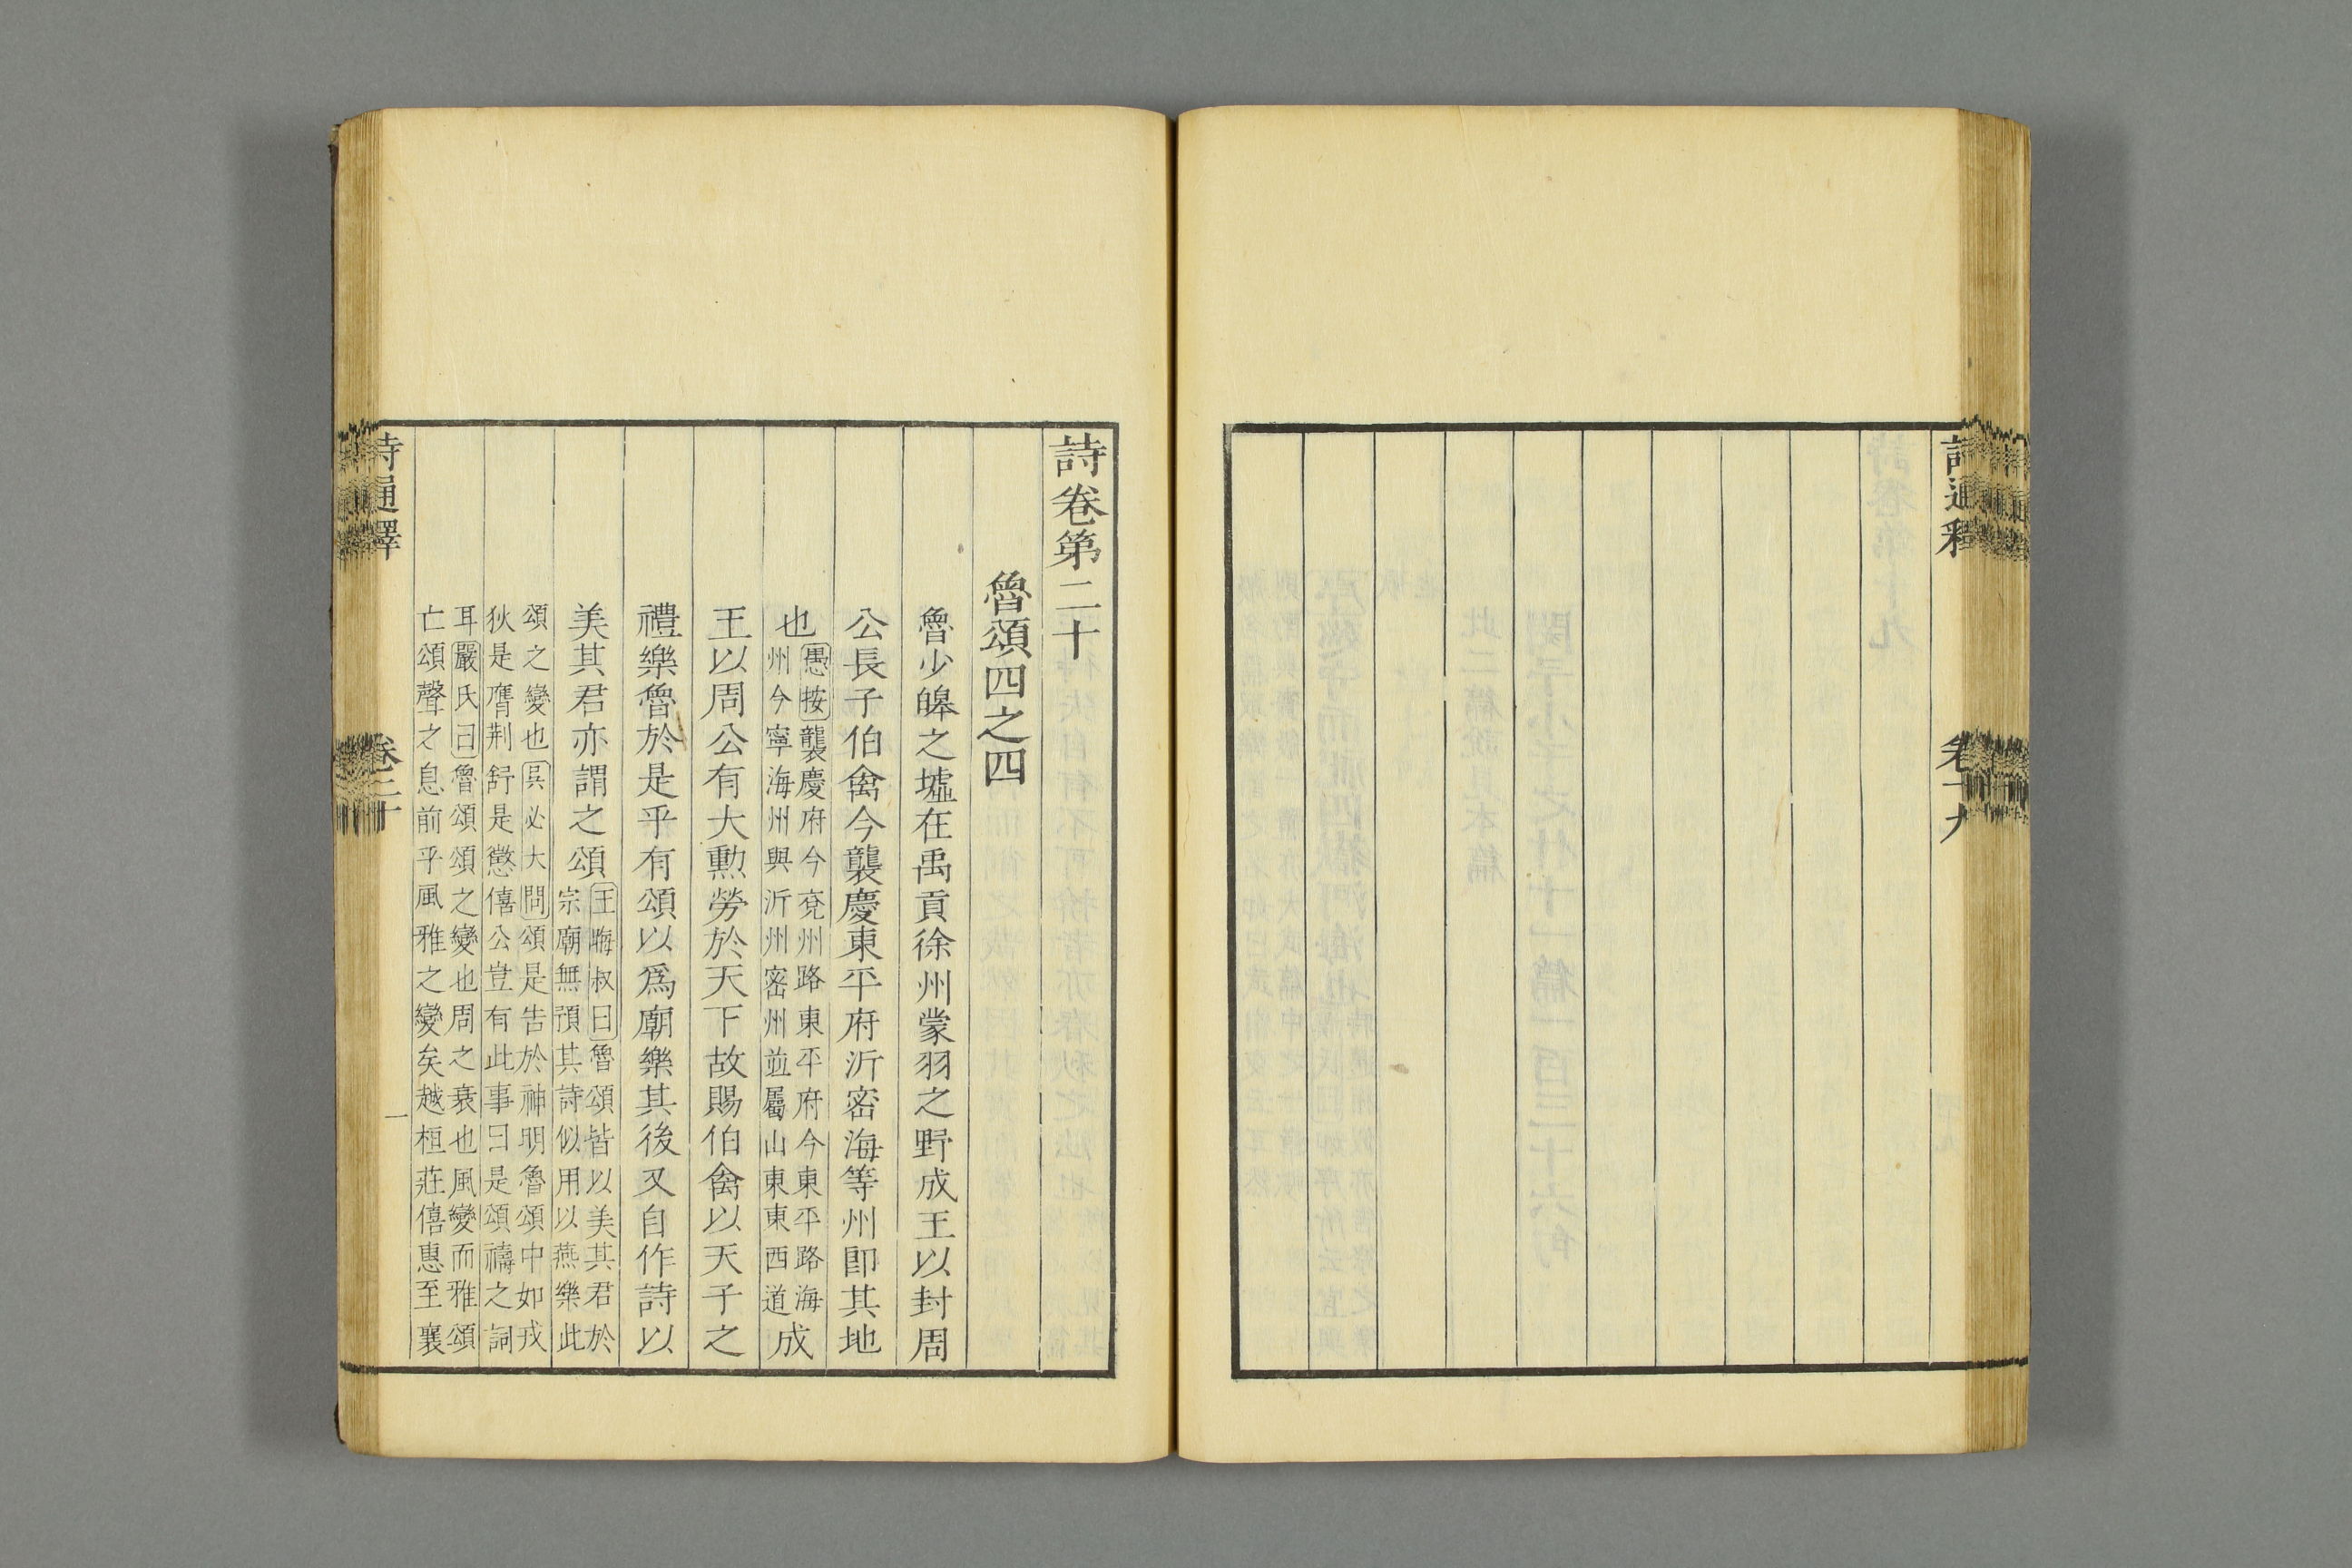 詩卷第二十
魯頌四之四
魯少皞之墟在禹貢徐州蒙羽之野成王以封周
公長子伯禽今襲慶東平府沂密海等州卽其地
也
愚按襲慶府今兗州路東平府今東平路海
州今寧海州與沂州密州並屬山東東西道
成
王以周公有大勲勞於天下故賜伯禽以天子之
禮樂魯於是乎有頌以爲廟樂其後又自作詩以
美其君亦謂之頌
王晦叔曰魯頌皆以美其君於
宗廟無預其詩似用以燕樂此
頌之變也吳必大問頌是告於神明魯頌中如戎
狄是膺荆舒是懲僖公豈有此事曰是頌禱之詞
耳嚴氏曰魯頌頌之變也周之衰也風變而雅頌
亡頌聲之息前乎風雅之變矣越桓莊僖惠至襄
詩通釋
卷二十
一
詩通釋
卷十九